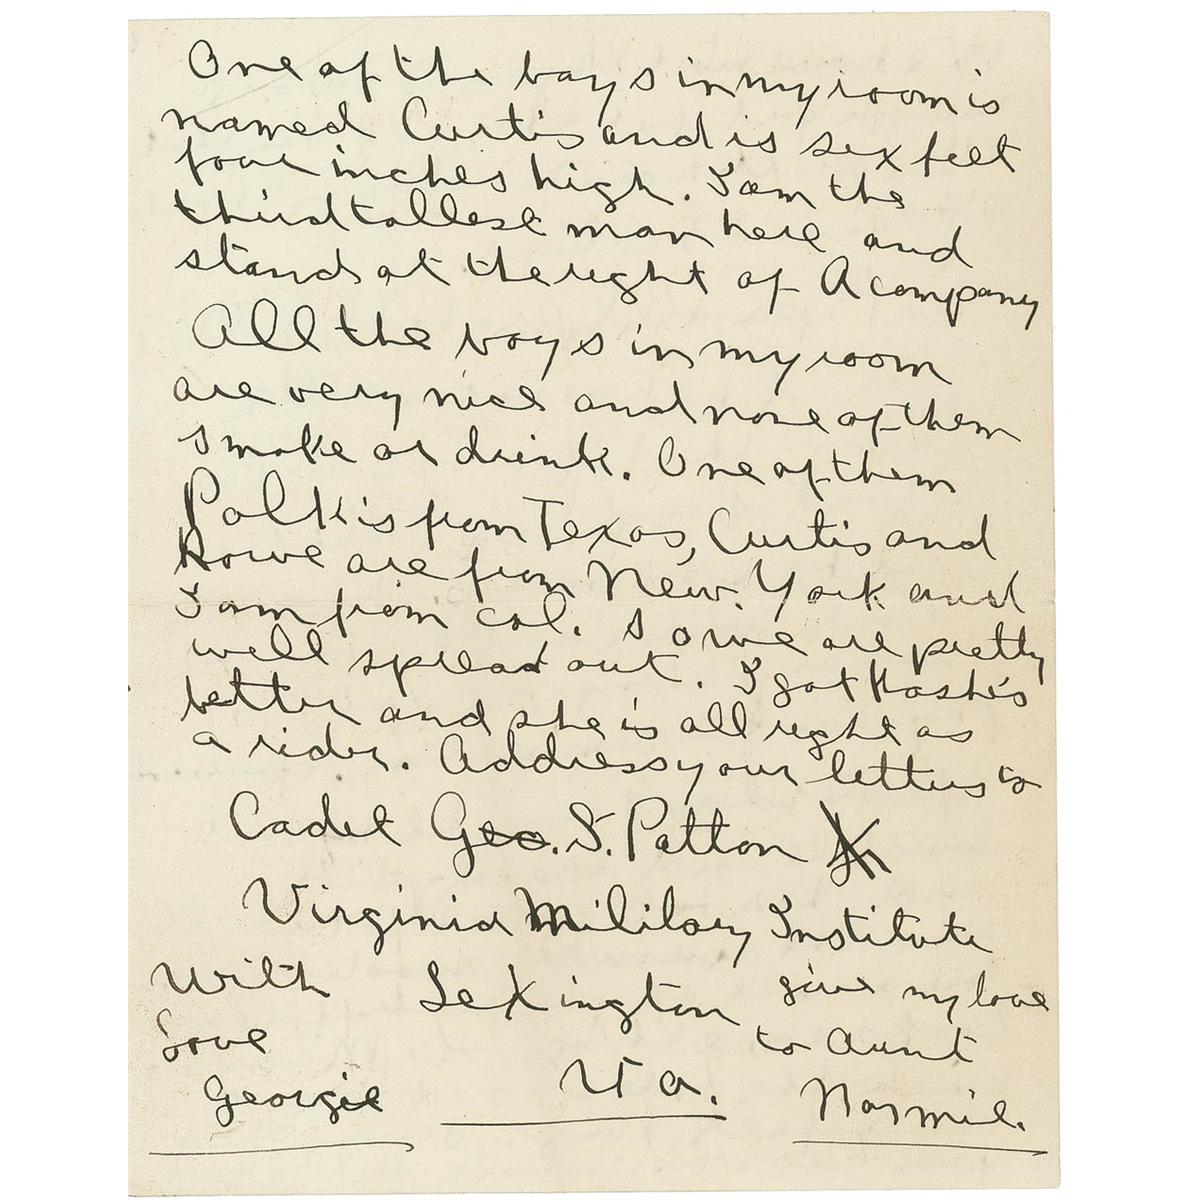 One of the boys in my room is
named Curtis and is sex feet
four inches high. I am the
third tallest man here and
stand at the right of A company
All the boys in my room
are very nice and none of them
smoke or drink. One of them
Polk is from Texas, Curtis and
Rowe are from New. York and
I am from Cal. So we are pretty
well spread out. I got
letter and she is all right as
a rider. Address your letters to
Cadet Geo. S. Patton Jr
Virginia Military Institute
Lexington
Va.
With
Love
Georgie
give my love
to Aunt
Nannie.